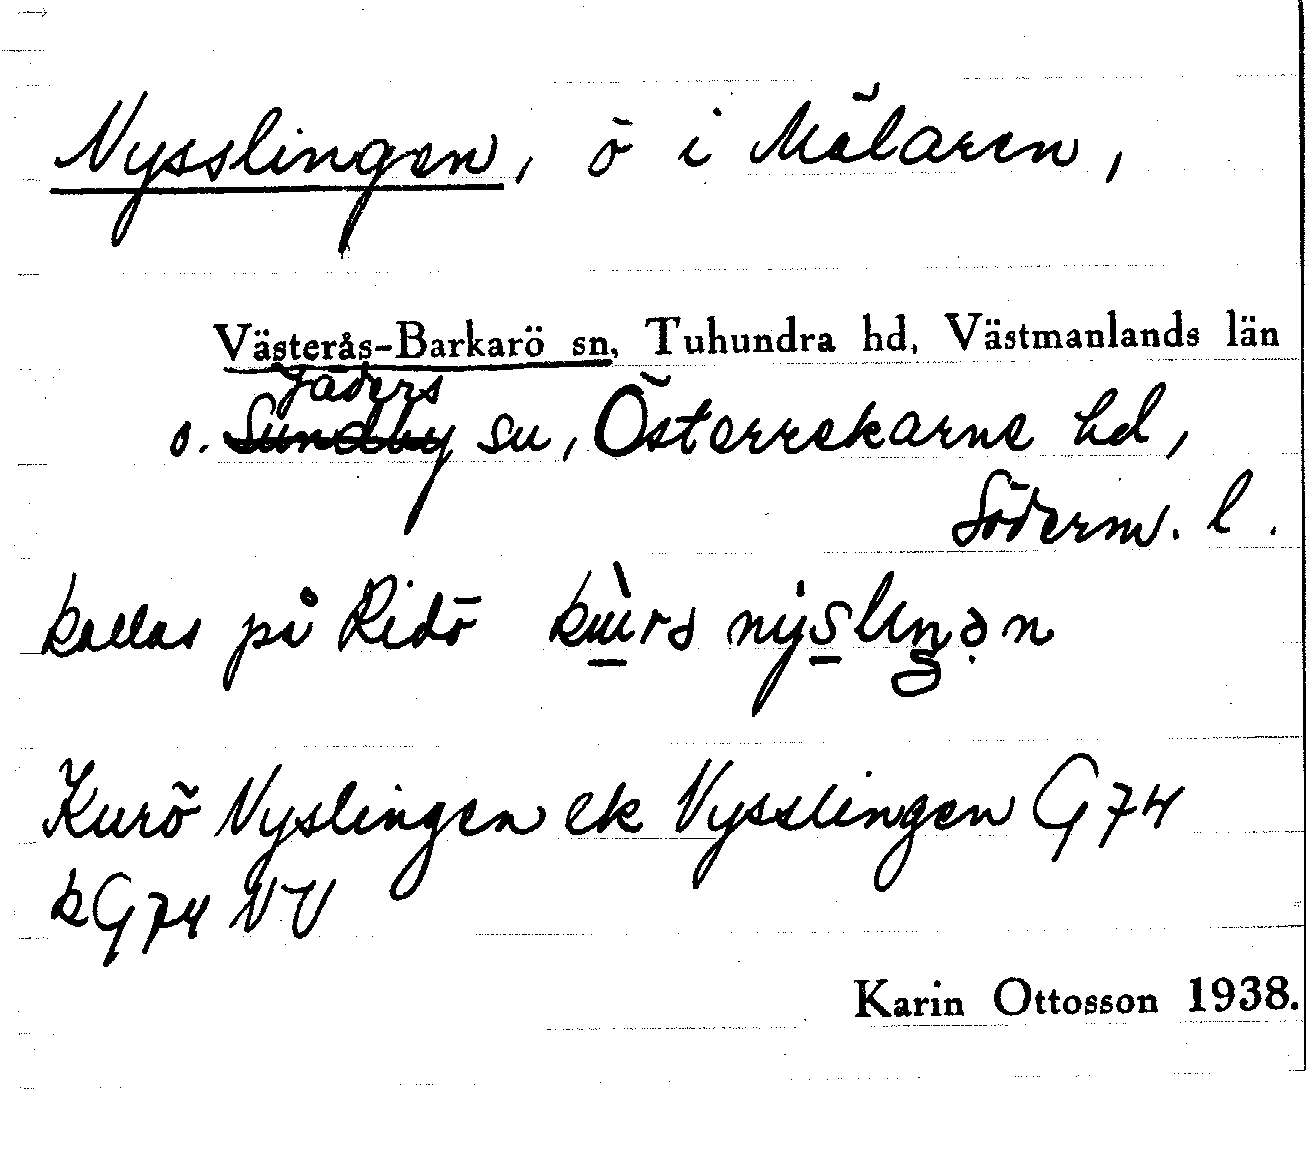 Nysslingen, ö i Mälaren,
Västerås-Barkarö sn, Tuhundra hd, Västmanlands län
Jäders
o. Sundby sn, Österrekarne hd,
Söderm. l.
kallas på Ridö
Kurö Nyslingen ek Nysslingen G 74
k G 74 NV
Karin Ottosson 1938.